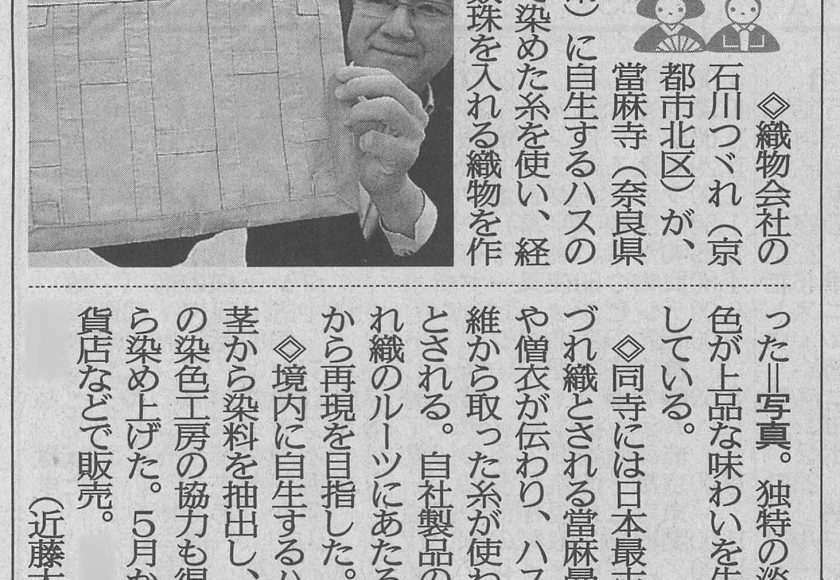 ◇織物会社の
石川つづれ（京
都市北区）が、
當麻寺（奈良県
）に自生するハスの
染めた糸を使い、経
珠を入れる織物を作
った＝写真。独特の淡
色が上品な味わいを
している。
◇同寺には日本最古
づれ織とされる當麻曼
や僧衣が伝わり、ハス
維から取った糸が使わ
とされる。自社製品の
れ織のルーツにあたる
から再現を目指した。
◇境内に自生するハ
茎から染料を抽出し、
の染色工房の協力も得
ら染め上げた。５月か
貨店などで販売。
（近藤